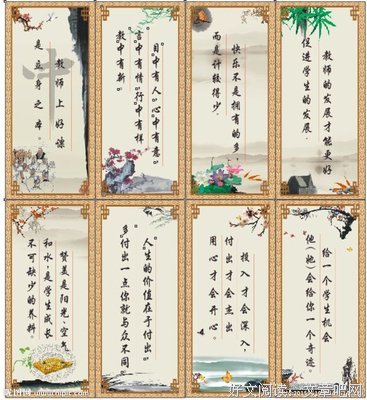 教师上好课
是立身之本。
目中有人,心中有意。
言中有情,行中有样
教中有新。
快乐不是拥有的多,
而是计较得少.
教师的发展才能更好
促进学生的发展.
赞美是阳光,空气
和水,是学生成长
不可缺少的养料。
人生的价值在于付出,
多付出一点你就与众不同。
投入才会深入,
付出才会杰出
用心才会开心。
给一个学生机会
他(她)会给你一个奇迹。
好文阅读 文章吧网